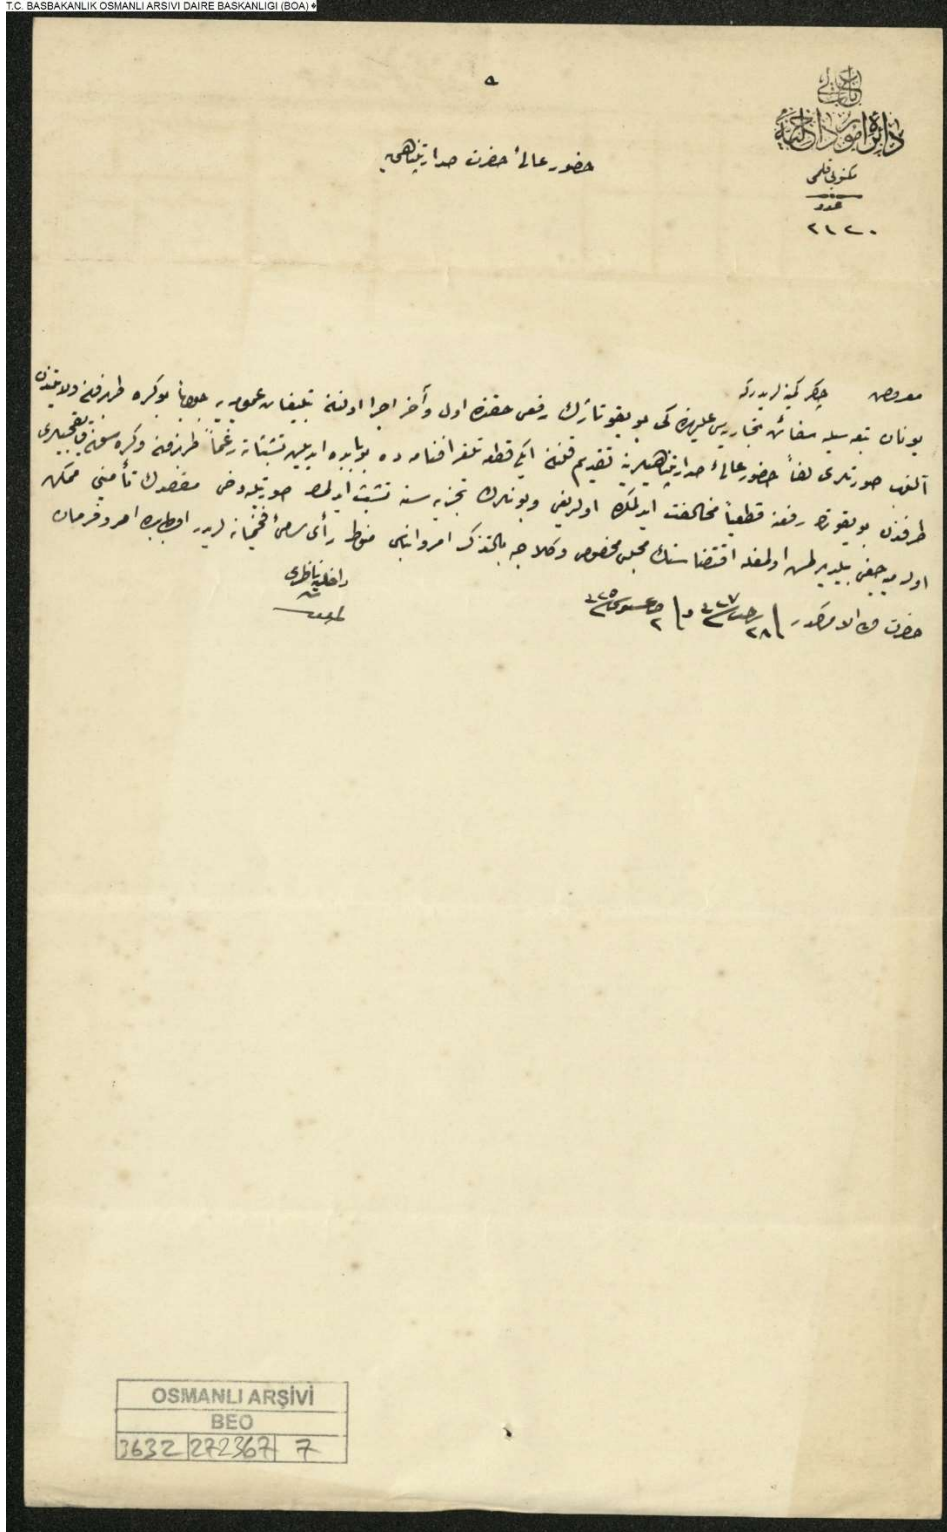 T.C. BASBAKANLIK OSMANLI ARSIVI DAIRE BASKANLIGI (BOA)
باب عالی
دائرهٔ امور داخلیه
مکتوبی قلمی
عدد
٢١٢٠
حضور عالیٔ حضرت صدارتپناهی
معروض چاکر کمینه‌لریدر که
یونان تبعه‌سیله سفائن تجاریه‌سی علیهنده‌کی بویقوتاژك رفعی حقنده اول و آخر اجرا اولنان تبلیغات عمومیه‌یه جواباً بوکره طربزون ولایتندن
آلنوب صورتلری لفاً حضور عالیٔ صدارتپناهیلرینه تقدیم قلنان ایکی قطعه تلغرافنامه‌ده بوبابده ایدیلن تشبثاته رغماً طربزون وکره سون قایقجیلری
طرفندن بویقوتاژك رفعنه قطعیاً مخالفت ایدلمکده اولدیغی وبونلرك تجزیه‌سنه تشبث ایدلمك صورتیله دخی مقصدك تأمینی ممکن
اوله‌میه‌جغی بیلدیرلمش اولمغله اقتضاسنك مجلس مخصوص وکلاجه بالتذکر امر وانباسی منوط رأی سامیٔ فخیمانه‌لریدر اولبابده امر وفرمان
حضرت من له الامرکدر ٢٨ رجب ٣٢٧ و ٢ اغستوس ٣٢٥
داخلیه ناظری
OSMANLI ARŞİVİ
BEO
3632 272367 7